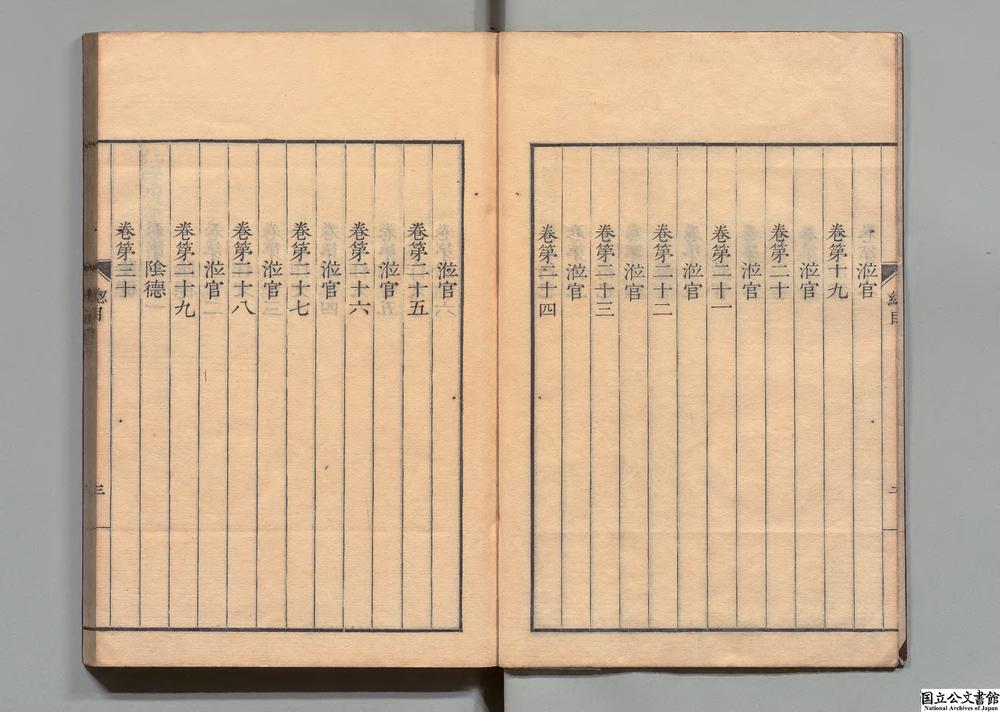 涖官
卷第十九
涖官
卷第二十
涖官
卷第二十一
涖官
卷第二十二
涖官
卷第二十三
涖官
卷第二十四
總目
二
涖官
卷第二十五
涖官
卷第二十六
涖官
卷第二十七
涖官
卷第二十八
涖官
卷第二十九
陰德
卷第三十
總目
三
国立公文書館
National Archives of Japan